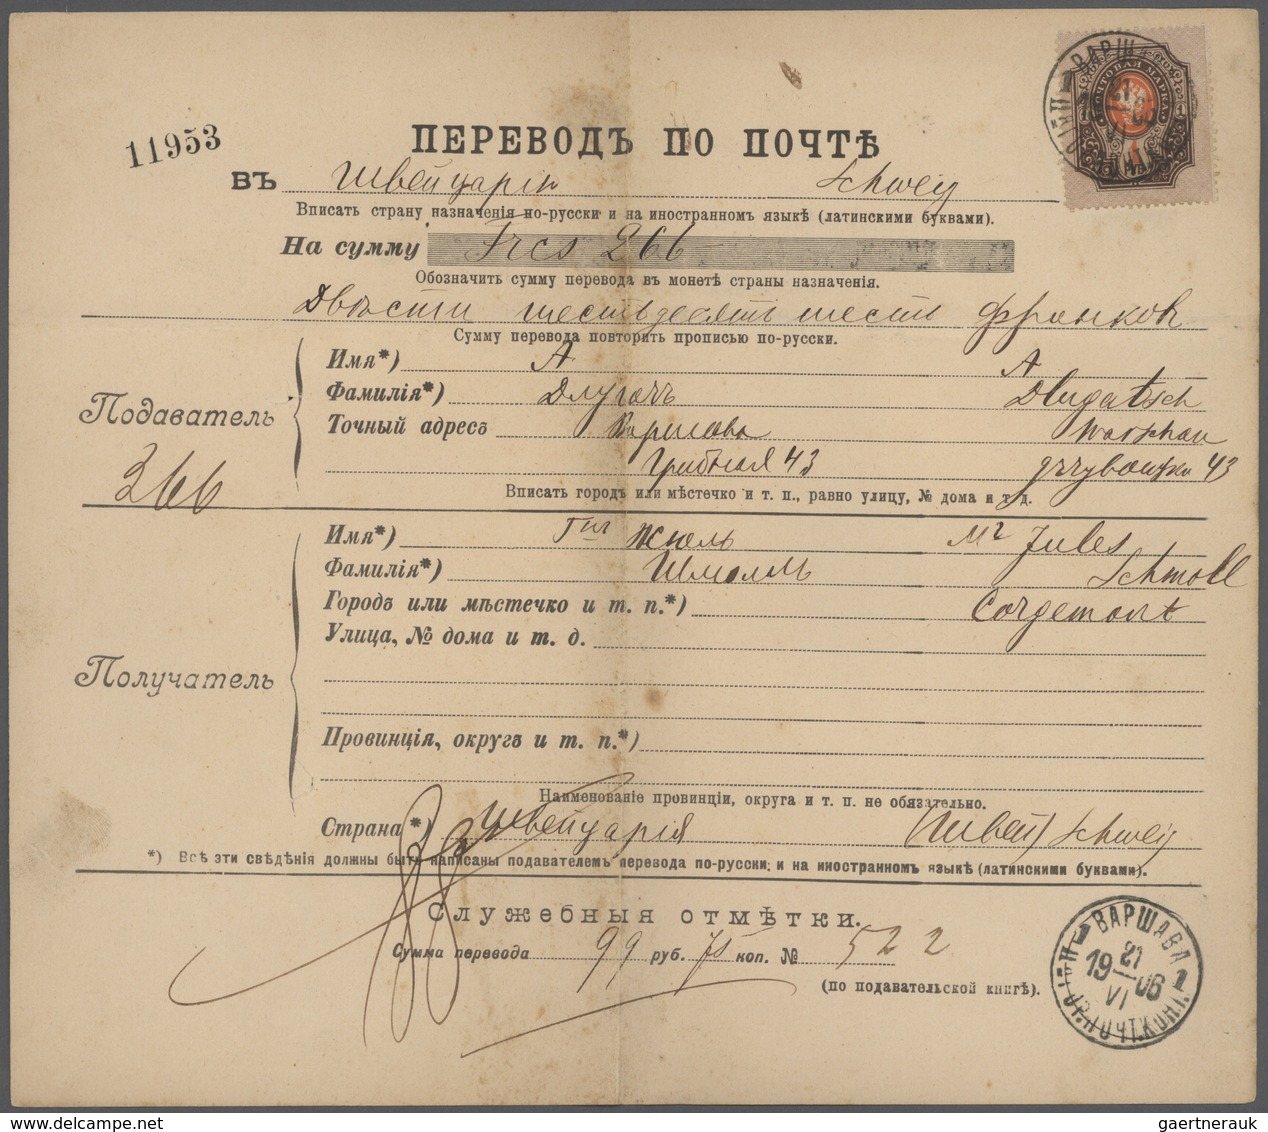 11953
ПЕРЕВОДЪ ПО ПОЧТѢ
ВЪ Швейцарію Schweiz
Вписать страну назначенія по-русски и на иностранномъ языкѣ (латинскими буквами).
На сумму Frcs 266
Обозначить сумму перевода въ монетѣ страны назначенія.
Двѣсти шестьдесятъ шесть франковъ
Сумму перевода повторить прописью по-русски.
Имя*) А A
Подаватель
Фамилія*) Длугачъ Dlugatsch
Точный адресъ Варшава Warschau
43 43
366
Вписать городъ или мѣстечко и т. п., равно улицу, № дома и т. д.
Получатель
Имя*) Жюль Mr Jules
Фамилія*) Шмолль Schmoll
Городъ или мѣстечко и т. п.*) Corgemont
Улица, № дома и т. д.
Провинція, округъ и т. п.*)
Наименованіе провинціи, округа и т. п. не обязательно.
Страна*) Швейцарія (Швей) Schweiz
*) Всѣ эти свѣдѣнія должны быть написаны подавателемъ перевода по-русски и на иностранномъ языкѣ (латинскими буквами).
СЛУЖЕБНЫЯ ОТМѢТКИ.
Сумма перевода 99 руб. 75 коп. № 522
(по подавательской книгѣ).
ВАРШАВА
21
19 06
VI
1
gaertnerauk @ delcampe.net